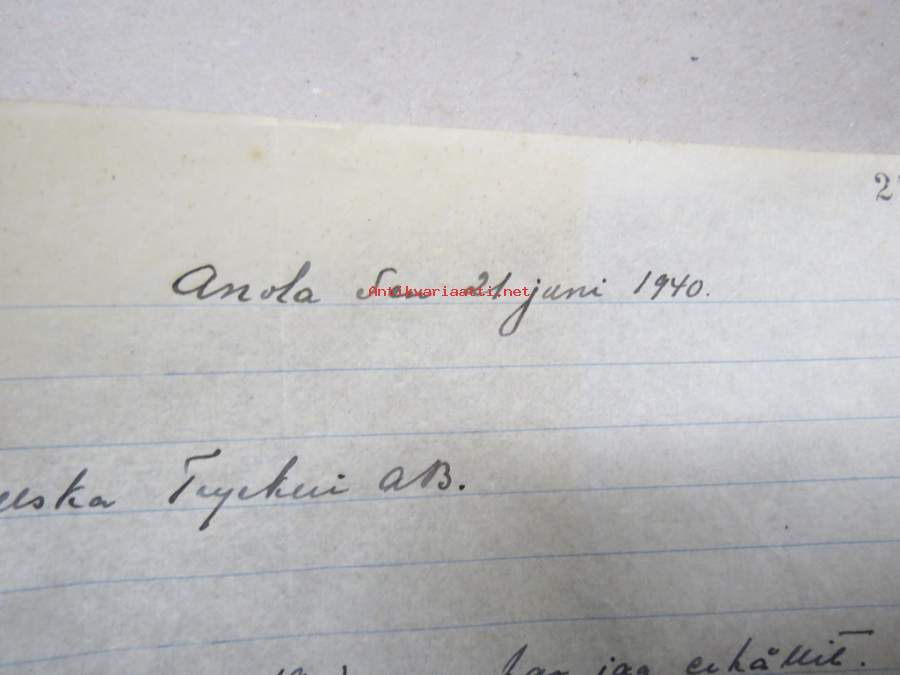 2
Anola den 21 juni 1940.
Antikvariaatti.net
Tryckeri AB.
har jag erhållit.